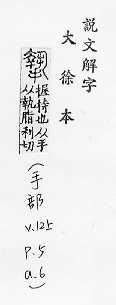 說文解字
大徐本
摯 握持也从手
从執脂利切
(手部
v.125
P.5
a.6)